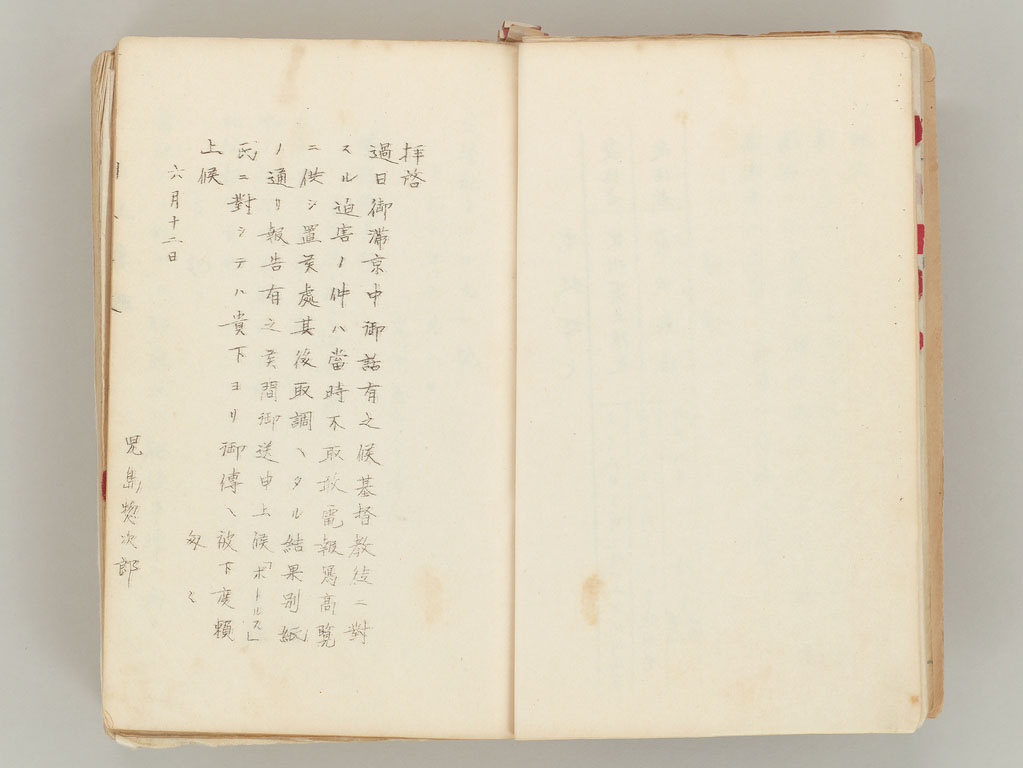 拝啓
過日御滞京中御話有之候基督教徒ニ對
スル迫害ノ件ハ當時不取敢電報写高覧
ニ供シ置候處其後取調ヘタル結果別紙
ノ通リ報告有之候間御送申上候「ボトルス」
氏ニ對シテハ貴下ヨリ御傳ヘ被下度頼
上候
匆々
六月十二日
児島惣次郎